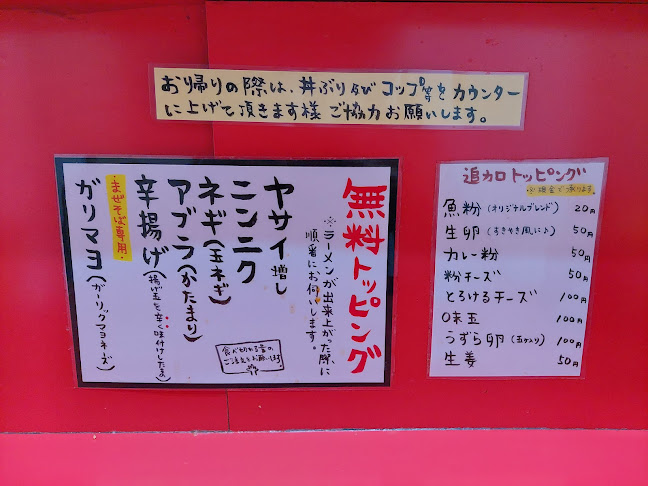 おり帰りの際は、丼ぶり及びコップ等をカウンター
に上げて頂きます様ご協力お願いします。
無料トッピング
※ラーメンが出来上がった際に
順番にお伺いします。
ヤサイ増し
ニンニク
ネギ(玉ネギ)
アブラ(かたまり)
辛揚げ(揚げ玉を辛く味付けしたよ)
・まぜそば専用・
ガリマヨ(ガーリックマヨネーズ)
食べ切れる量の
ご注文をお願いします
追加トッピング
※現金で承ります。
魚粉(オリジナルブレンド) 20円
生卵(すきやき風に♪) 50円
カレー粉 50円
粉チーズ 50円
とろけるチーズ 100円
味玉 100円
うずら卵(五ケ入り) 100円
生姜 50円